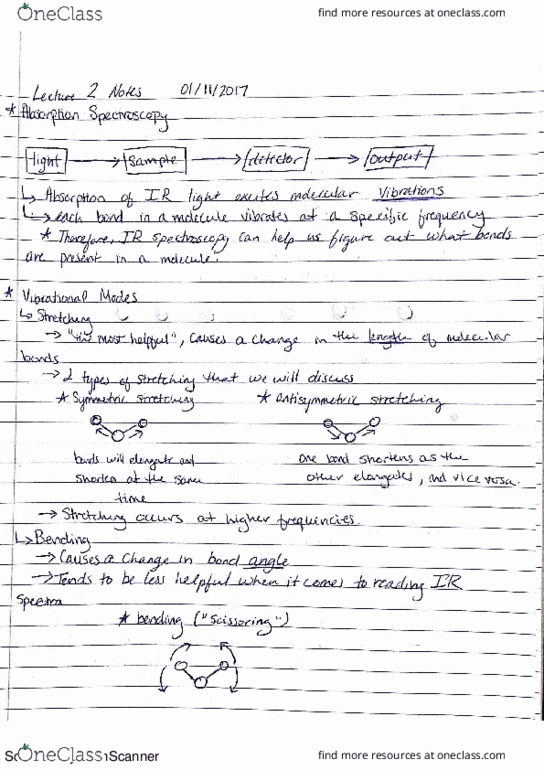 OneClass
find more resources at oneclass.com
Lecture 2 Notes 01/11/2017
* Absorption Spectroscopy
light → sample → detector → output
↳ Absorption of IR light excites molecular vibrations
↳ each bond in a molecule vibrates at a specific frequency
* Therefore, IR spectroscopy can help us figure out what bonds
are present in a molecule.
* Vibrational Modes
↳ Stretching
→ "the most helpful", causes a change in the length of molecular
bonds
→ 2 types of stretching that we will discuss
* Symmetric stretching * antisymmetric stretching
bonds will elongate and one bond shortens as the
shorten at the same other elongates, and vice versa.
time
→ Stretching occurs at higher frequencies.
↳ Bending
→ Causes a change in bond angle
→ Tends to be less helpful when it comes to reading IR
Spectra
* bending ("Scissoring")
OneClass Scanner
find more resources at oneclass.com